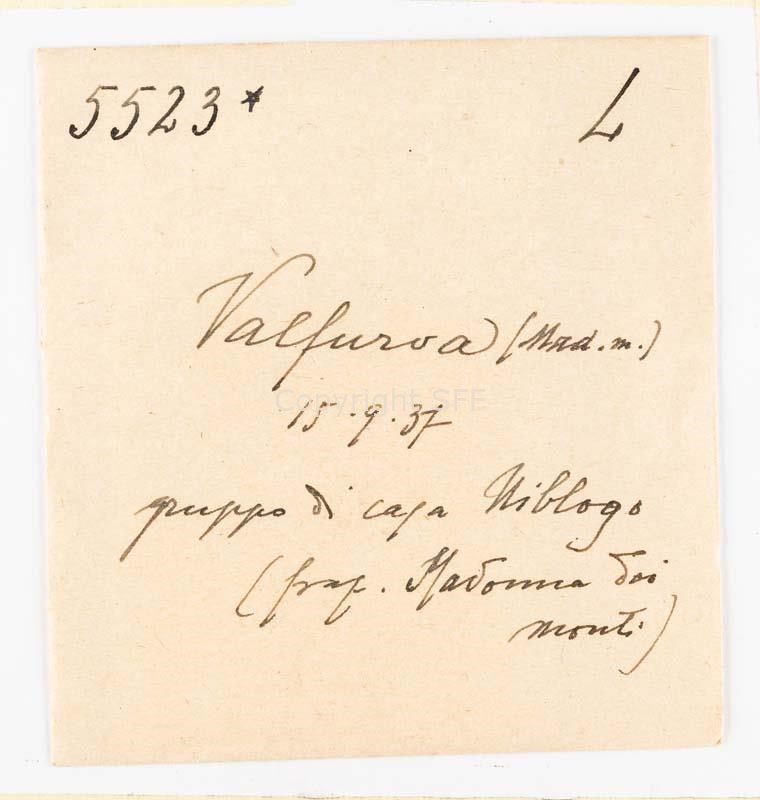 5523* L
Valfurva (Mad. m.)
Copyright SFE
15.9.37
gruppo di case Niblogo
(fraz. Madonna dei
monti)